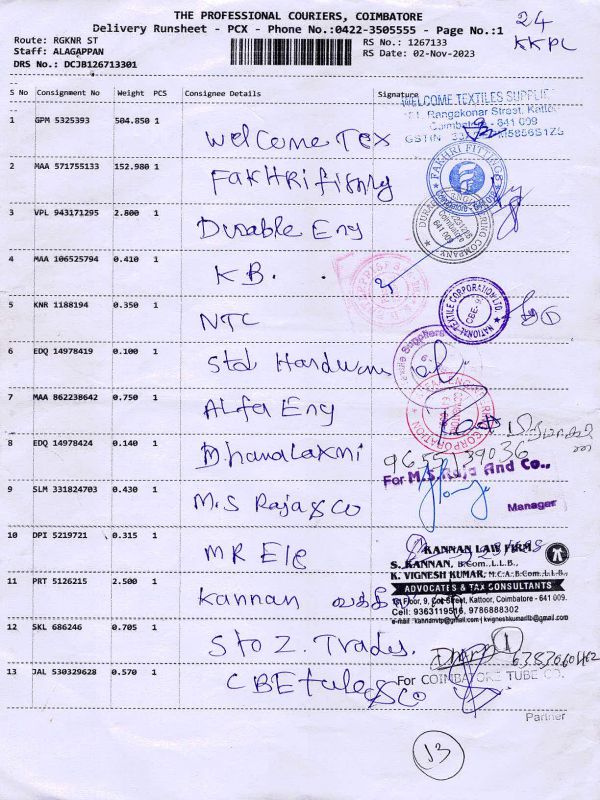 THE PROFESSIONAL COURIERS, COIMBATORE
Delivery Runsheet - PCX - Phone No.:0422-3505555 - Page No.:1
24
KKPL
Route: RGKNR ST
Staff: ALAGAPPAN
DRS No.: DCJB126713301
RS No.: 1267133
RS Date: 02-Nov-2023
S No Consignment No Weight PCS Consignee Details Signature
1 GPM 5325393 504.850 1 Welcome Tex
WELCOME TEXTILES SUPPLIE
Rangakonar Street, Kattoor
Coimbatore - 641 009
2 MAA 571755133 152.980 1 FAKHRi fitting
FAKHRI FITTINGS
3 VPL 943171295 2.800 1 Durable Eng
4 MAA 106525794 0.410 1 K.B.
5 KNR 1188194 0.350 1 NTC
NATIONAL TEXTILE CORPORATION LTD.
CBE-9
6 EDQ 14978419 0.100 1 Std Hardware
7 MAA 862238642 0.750 1 ALfa Eng
8 EDQ 14978424 0.140 1 Dhanalaxmi
9655139036
9 SLM 331824703 0.430 1 M.S Raja & Co
For M.S.Raja And Co.,
Manager
10 DPI 5219721 0.315 1 MR Ele
11 PRT 5126215 2.500 1 Kannan வக்கீல்
KANNAN LAW FIRM
S. KANNAN, B.Com.,L.L.B.,
K. VIGNESH KUMAR, M.C.A.,B.Com.,L.L.B.,
ADVOCATES & TAX CONSULTANTS
Floor, 9, Street, Kattoor, Coimbatore - 641 009.
Cell: 9363119516, 9786888302
e-mail : kannanvtp@gmail.com | kvigneshkumarllb@gmail.com
12 SKL 686246 0.705 1 S to Z. Trades.
1
13 JAL 530329628 0.570 1 CBE tube & Co
For COIMBATORE TUBE CO.
Partner
13